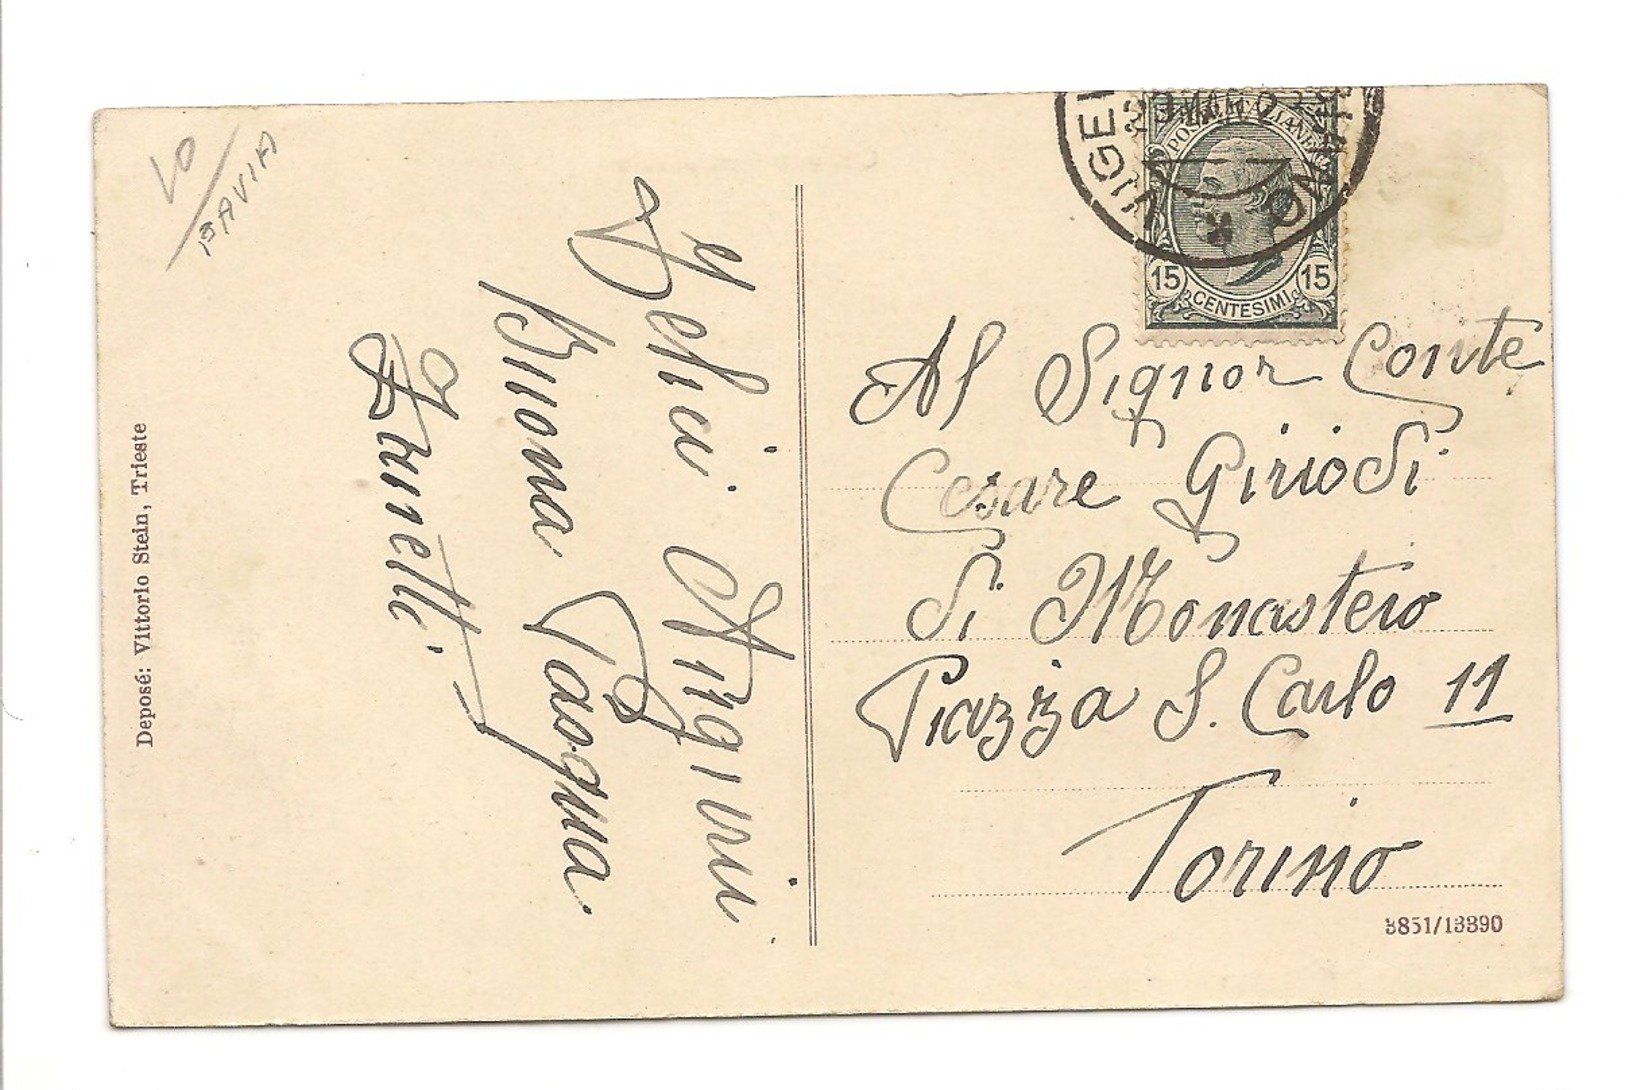 LO
PAVIA
Deposé: Vittorio Stein, Trieste
Felici Auguri
Buona Pasqua.
Zanelli
POSTE ITALIANE
15 CENTESIMI 15
Al Signor Conte
Cesare Giriodi
di Monastero
Piazza S. Carlo 11
Torino
3851/13390